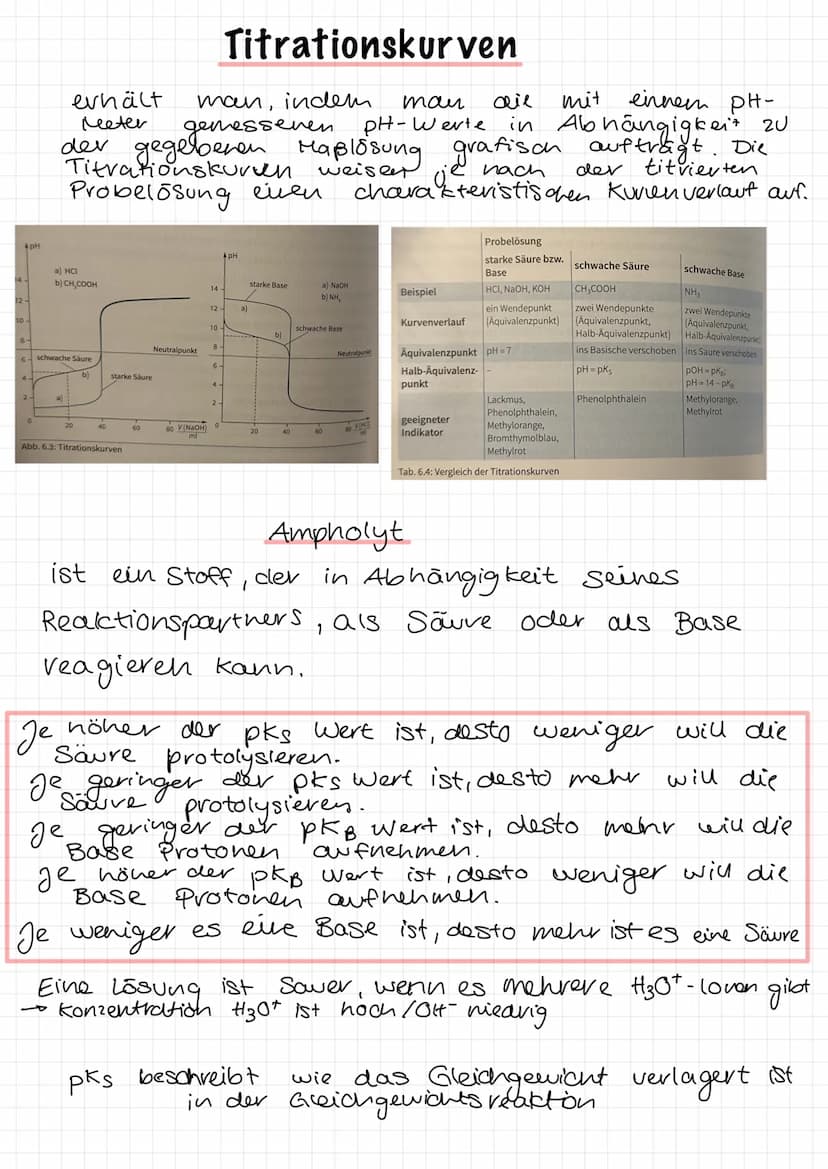 Titrationskurven
erhält man, indem man die mit einnem pH-
Meter gemessenen pH-Werte in Abhängigkeit zu
der gegebenen Maßlösung grafisch aufträgt. Die
Titrationskurven weisen je nach der titrierten
Probelösung einen charakteristischen Kurvenverlauf auf.
pH
a) HCl
b) CH₃COOH
14
12
10
8
6
4
2
0
schwache Säure
b)
starke Säure
a)
Neutralpunkt
20 40 60 80 V(NaOH)
ml
Abb. 6.3: Titrationskurven
pH
14
12
10
8
6
4
2
0
starke Base
a) NaOH
b) NH₃
a)
b)
schwache Base
Neutralpunkt
20 40 60 80 V(HCl)
ml
Probelösung
starke Säure bzw. Base
schwache Säure
schwache Base
Beispiel
HCl, NaOH, KOH
CH₃COOH
NH₃
Kurvenverlauf
ein Wendepunkt
(Äquivalenzpunkt)
zwei Wendepunkte
(Äquivalenzpunkt,
Halb-Äquivalenzpunkt)
zwei Wendepunkte
(Äquivalenzpunkt,
Halb-Äquivalenzpunkt)
Äquivalenzpunkt
pH = 7
ins Basische verschoben
ins Saure verschoben
Halb-Äquivalenz-
punkt
-
pH = pKₛ
pOH = pK_B;
pH = 14 - pK_B
geeigneter
Indikator
Lackmus,
Phenolphthalein,
Methylorange,
Bromthymolblau,
Methylrot
Phenolphthalein
Methylorange,
Methylrot
Tab. 6.4: Vergleich der Titrationskurven
Ampholyt
ist ein Stoff, der in Abhängigkeit seines
Reaktionspartners, als Säure oder als Base
reagieren kann.
Je höher der pKs Wert ist, desto weniger will die
Säure protolysieren.
Je geringer der pKs Wert ist, desto mehr will die
Säure protolysieren.
Je geringer der pK_B Wert ist, desto mehr will die
Base Protonen aufnehmen.
Je höher der pK_B Wert ist, desto weniger will die
Base Protonen aufnehmen.
Je weniger es eine Base ist, desto mehr ist es eine Säure
Eine Lösung ist Sauer, wenn es mehrere H₃O⁺-Ionen gibt
→ Konzentration H₃O⁺ ist hoch / OH⁻ niedrig
pKs beschreibt wie das Gleichgewicht verlagert ist
in der Gleichgewichtsreaktion